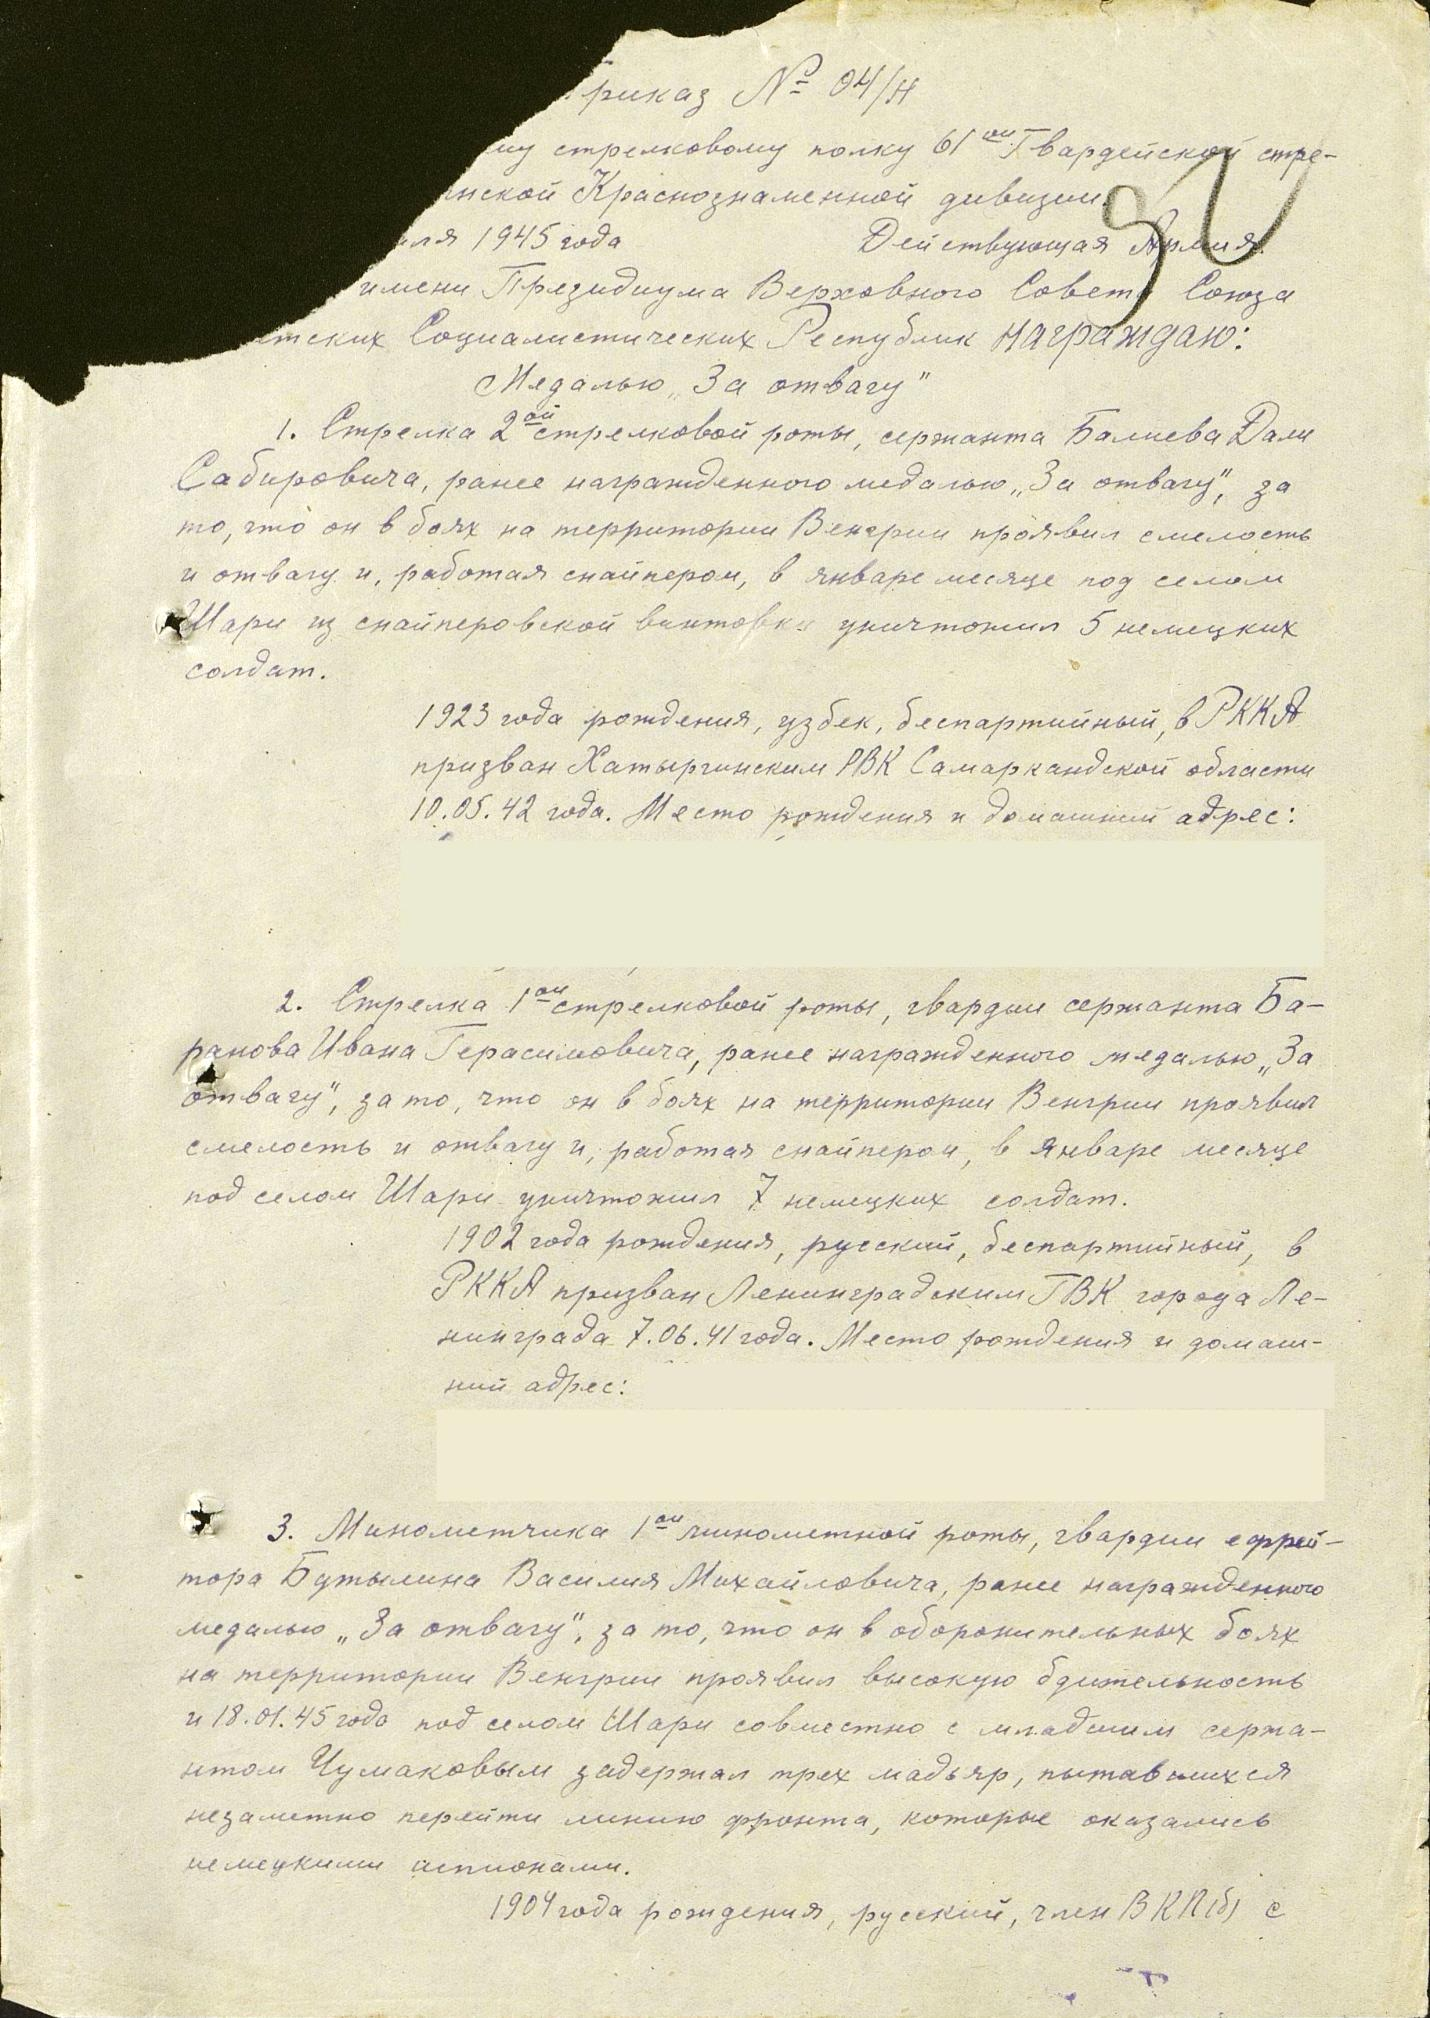 Приказ № 04/н
му стрелковому полку 61ой Гвардейской стре-
нской Краснознаменной дивизии.
ля 1945 года Действующая Армия.
имени Президиума Верховного Совета Союза
тских Социалистических Республик награждаю:
Медалью „За отвагу"
1. Стрелка 2ой стрелковой роты, сержанта Балиева Дали
Сабировича, ранее награжденного медалью „За отвагу", за
то, что он в боях на территории Венгрии проявил смелость
и отвагу и, работая снайпером, в январе месяце под селом
Шари из снайперовской винтовки уничтожил 5 немецких
солдат.
1923 года рождения, узбек, беспартийный, в РККА
призван Хатыргинским РВК Самаркандской области
10.05.42 года. Место рождения и домашний адрес:
2. Стрелка 1ой стрелковой роты, гвардии сержанта Ба-
ранова Ивана Герасимовича, ранее награжденного медалью „За
отвагу", за то, что он в боях на территории Венгрии проявил
смелость и отвагу и, работая снайпером, в январе месяце
под селом Шари уничтожил 7 немецких солдат.
1902 года рождения, русский, беспартийный, в
РККА призван Ленинградским ГВК города Ле-
нинграда 7.06.41 года. Место рождения и домаш-
ний адрес:
3. Минометчика 1ой минометной роты, гвардии ефрей-
тора Бутылина Василия Михайловича, ранее награжденного
медалью „За отвагу", за то, что он в оборонительных боях
на территории Венгрии проявил высокую бдительность
и 18.01.45 года под селом Шари совместно с младшим сержа-
нтом Чумаковым задержал трех мадьяр, пытавшихся
незаметно перейти линию фронта, которые оказались
немецкими шпионами.
1904 года рождения, русский, член ВКП(б) с